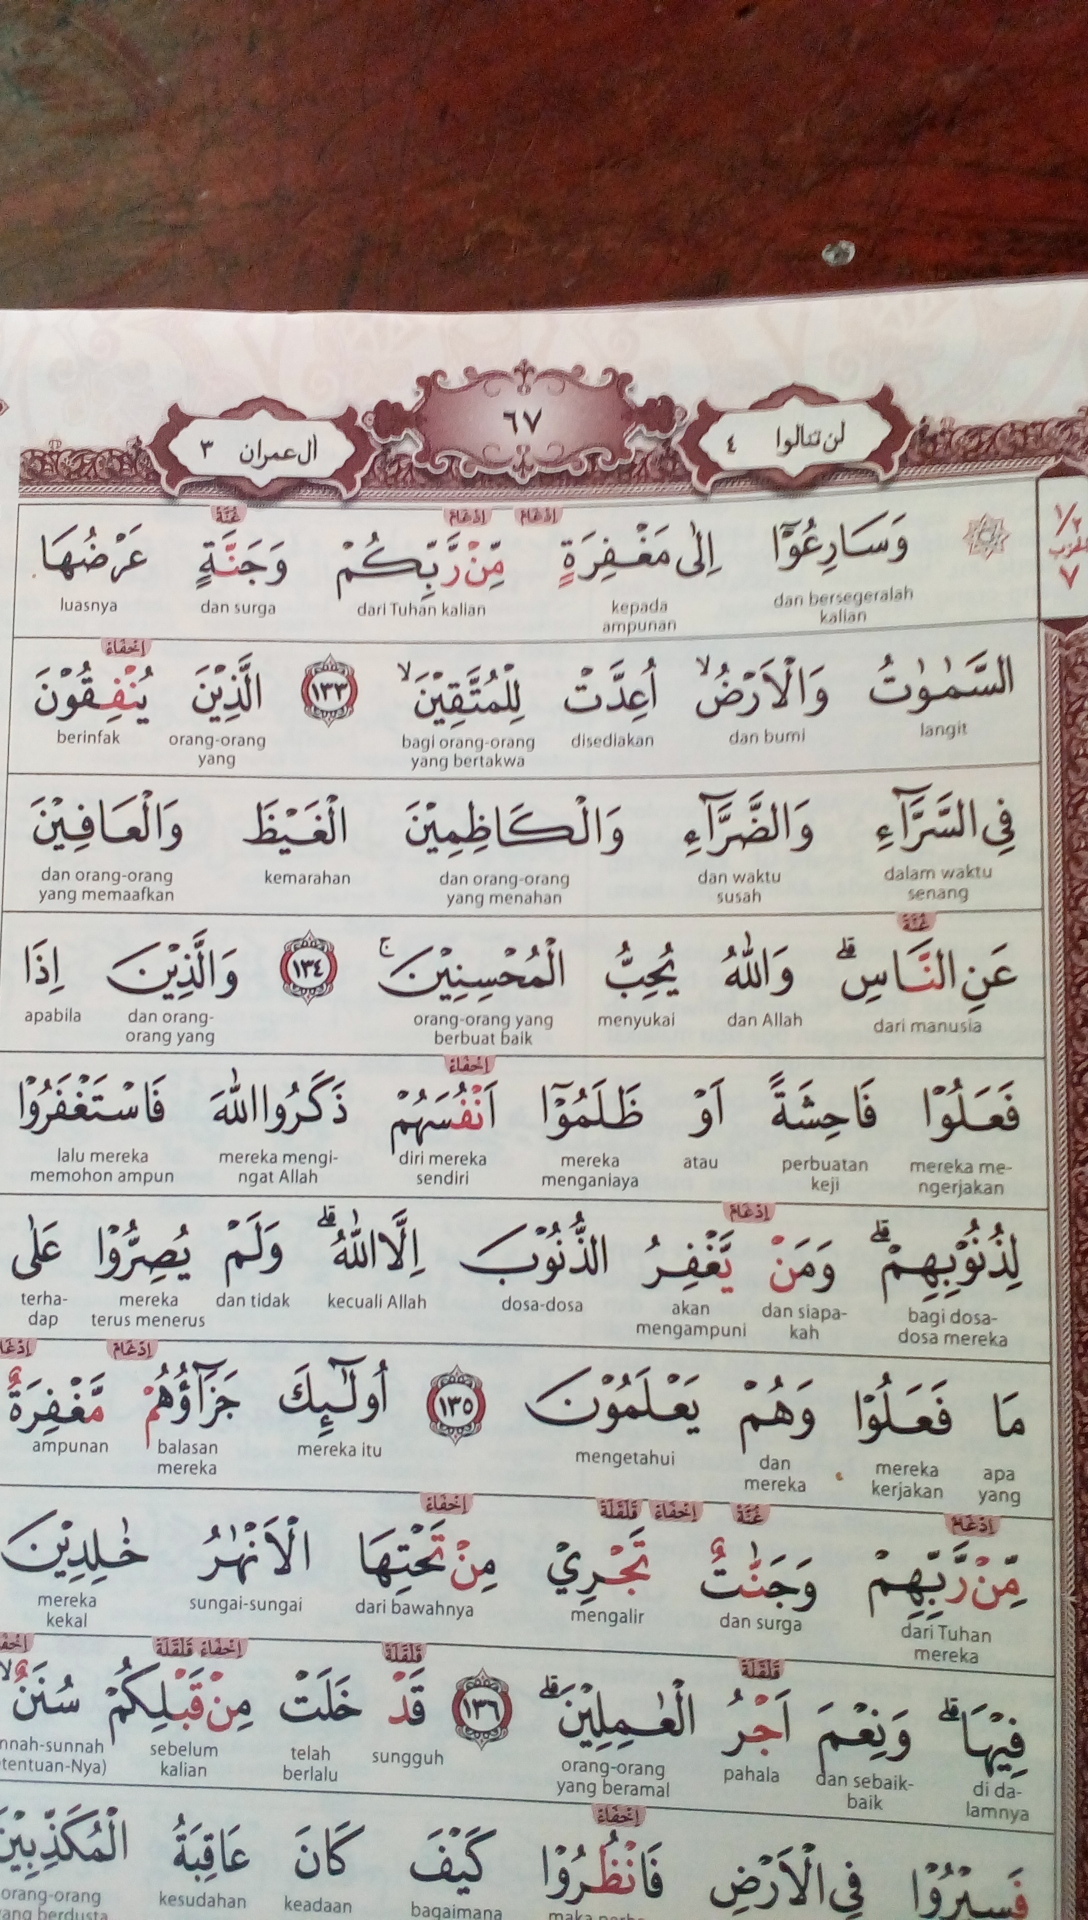 لن تنالوا ٤
٦٧
اٰل عمران ٣
١/٢
الحزب
٧
إدغام إدغام غنة
وَسَارِعُوْٓا اِلٰى مَغْفِرَةٍ مِّنْ رَّبِّكُمْ وَجَنَّةٍ عَرْضُهَا
dan bersegeralah kepada dari Tuhan kalian dan surga luasnya
kalian ampunan
إخفاء
السَّمٰوٰتُ وَالْاَرْضُۙ اُعِدَّتْ لِلْمُتَّقِيْنَۙ ١٣٣ الَّذِيْنَ يُنْفِقُوْنَ
langit dan bumi disediakan bagi orang-orang orang-orang berinfak
yang bertakwa yang
فِى السَّرَّۤاءِ وَالضَّرَّۤاءِ وَالْكَاظِمِيْنَ الْغَيْظَ وَالْعَافِيْنَ
dalam waktu dan waktu dan orang-orang kemarahan dan orang-orang
senang susah yang menahan yang memaafkan
غنة
عَنِ النَّاسِۗ وَاللّٰهُ يُحِبُّ الْمُحْسِنِيْنَۚ ١٣٤ وَالَّذِيْنَ اِذَا
dari manusia dan Allah menyukai orang-orang yang dan orang- apabila
berbuat baik orang yang
إخفاء
فَعَلُوْا فَاحِشَةً اَوْ ظَلَمُوْٓا اَنْفُسَهُمْ ذَكَرُوا اللّٰهَ فَاسْتَغْفَرُوْا
mereka me- perbuatan atau mereka diri mereka mereka mengi- lalu mereka
ngerjakan keji menganiaya sendiri ngat Allah memohon ampun
إدغام
لِذُنُوْبِهِمْۗ وَمَنْ يَّغْفِرُ الذُّنُوْبَ اِلَّا اللّٰهُۗ وَلَمْ يُصِرُّوْا عَلٰى
bagi dosa- dan siapa- akan dosa-dosa kecuali Allah dan tidak mereka terha-
dosa mereka kah mengampuni terus menerus dap
إدغام إدغام
مَا فَعَلُوْا وَهُمْ يَعْلَمُوْنَ ١٣٥ اُولٰۤىِٕكَ جَزَاۤؤُهُمْ مَّغْفِرَةٌ
apa mereka dan mengetahui mereka itu balasan ampunan
yang kerjakan mereka mereka
إدغام غنة إخفاء قلقلة إخفاء
مِّنْ رَّبِّهِمْ وَجَنّٰتٌ تَجْرِيْ مِنْ تَحْتِهَا الْاَنْهٰرُ خٰلِدِيْنَ
dari Tuhan dan surga mengalir dari bawahnya sungai-sungai mereka
mereka kekal
قلقلة قلقلة إخفاء قلقلة
فِيْهَاۗ وَنِعْمَ اَجْرُ الْعٰمِلِيْنَۗ ١٣٦ قَدْ خَلَتْ مِنْ قَبْلِكُمْ سُنَنٌۙ
di da- dan sebaik- pahala orang-orang sungguh telah sebelum nnah-sunnah
lamnya baik yang beramal berlalu kalian tentuan-Nya)
إخفاء
فَسِيْرُوْا فِى الْاَرْضِ فَانْظُرُوْا كَيْفَ كَانَ عَاقِبَةُ الْمُكَذِّبِيْنَ
bagaimana keadaan kesudahan orang-orang
yang berdusta